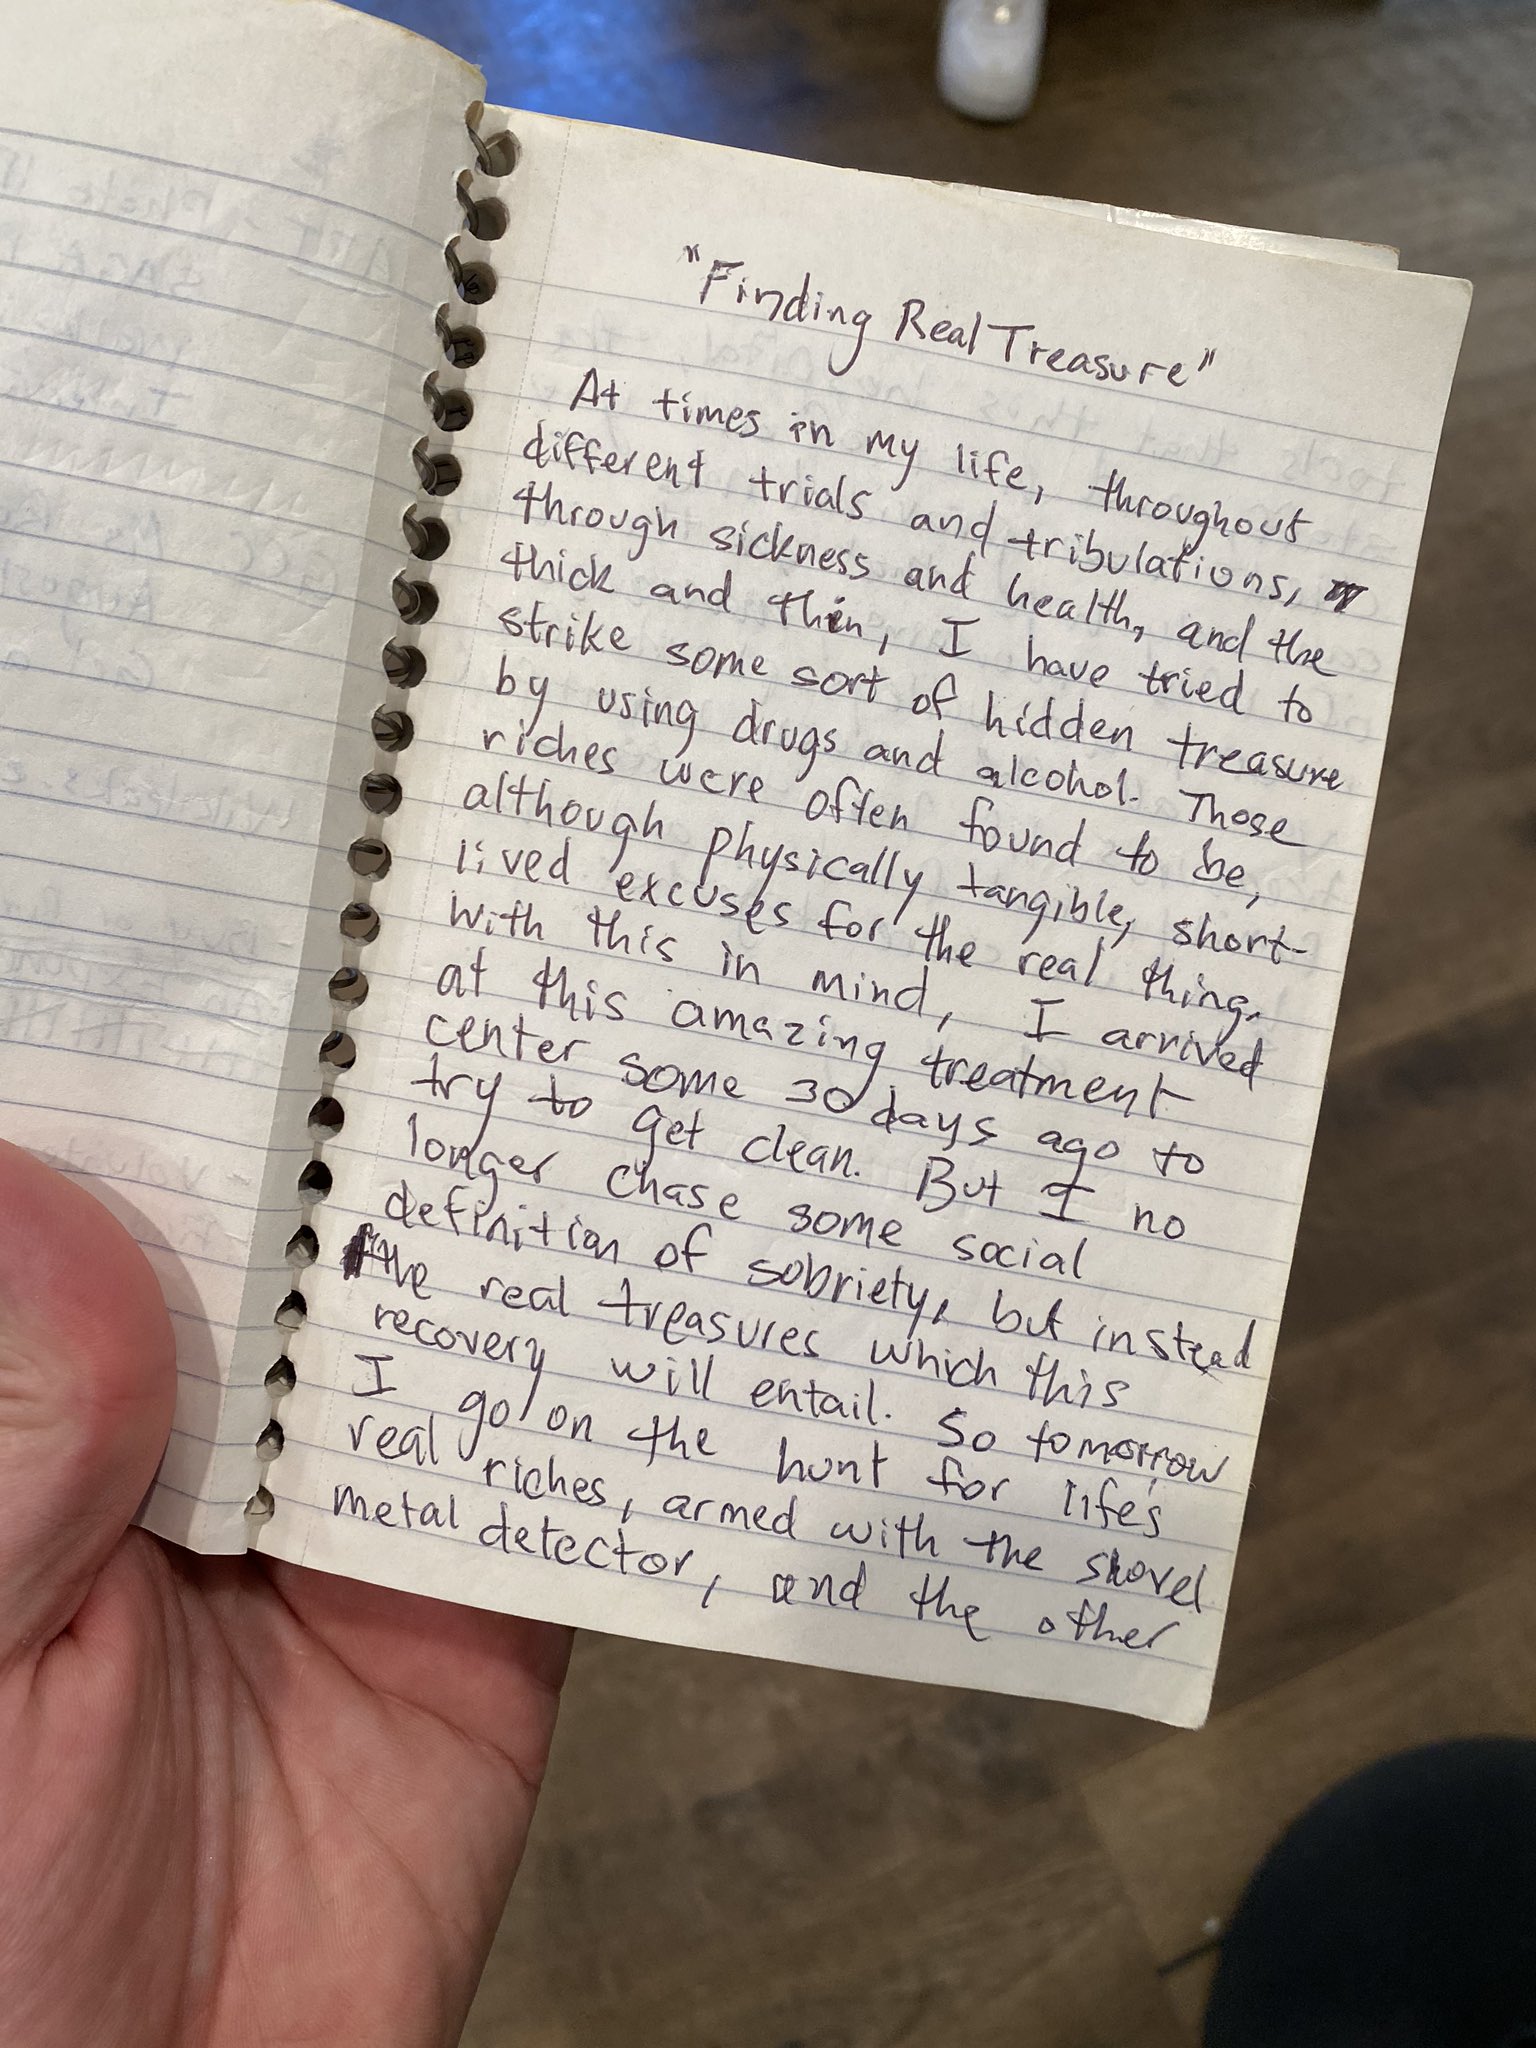 "Finding Real Treasure"
At times in my life, throughout
different trials and tribulations,
through sickness and health, and the
thick and thin, I have tried to
strike some sort of hidden treasure
by using drugs and alcohol. Those
riches were often found to be,
although physically tangible, short-
lived excuses for the real thing.
With this in mind, I arrived
at this amazing treatment
center some 30 days ago to
try to get clean. But I no
longer chase some social
definition of sobriety, but instead
the real treasures which this
recovery will entail. So tomorrow
I go on the hunt for life's
real riches, armed with the shovel
metal detector, and the other